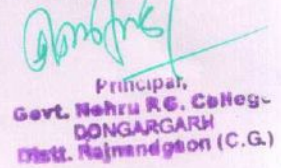 Principal,
Govt. Nehru P.G. College
DONGARGARH
Distt. Rajnandgaon (C.G.)